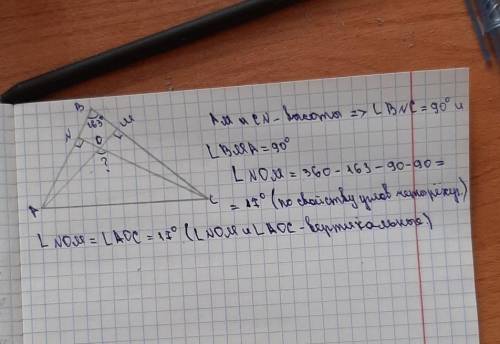 B
163°
N
M
O
?
A
C
AM и CN - высоты => ∠BNC = 90° и
∠BMA = 90°
∠NOM = 360 - 163 - 90 - 90 =
= 17° (по свойству углов четырёхуг.)
∠NOM = ∠AOC = 17° (∠NOM и ∠AOC - вертикальные)